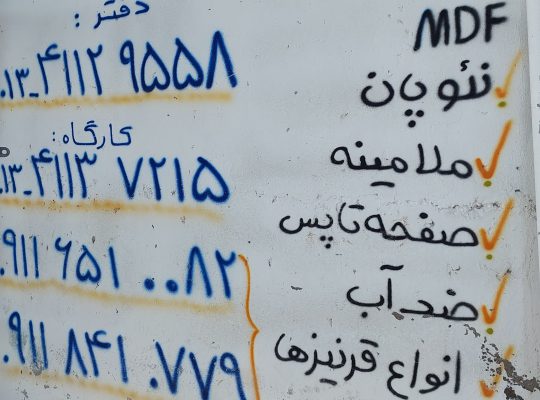 MDF
نئوپان
ملامینه
صفحه تاپس
ضد آب
انواع قرنیزها
دفتر :
۰۱۳_۴۱۱۲ ۹۵۵۸
کارگاه :
۰۱۳_۴۱۱۳ ۷۲۱۵
۰۹۱۱ ۶۵۱ ۰۰۸۲
۰۹۱۱ ۸۴۱ ۰۷۷۹